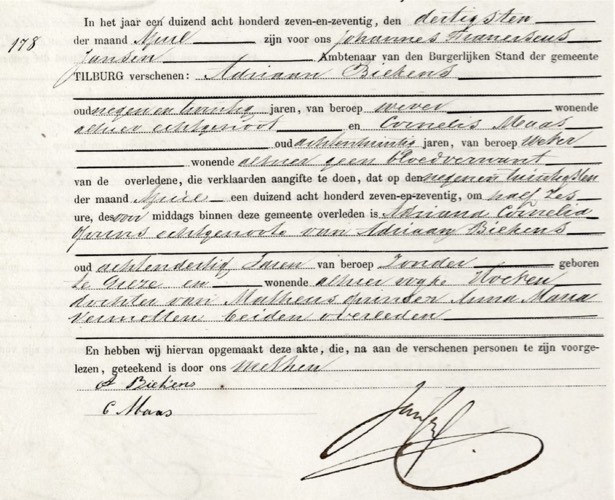 178
In het jaar een duizend acht honderd zeven-en-zeventig, den dertigsten
der maand April zijn voor ons Johannes Franciscus
Jansen Ambtenaar van den Burgerlijken Stand der gemeente
TILBURG verschenen: Adriaan Biekens
oud negen en twintig jaren, van beroep wever wonende
alhier echtgenoot en Cornelis Maas
oud achtentwintig jaren, van beroep Wever
wonende alhier geen bloedverwant
van de overledene, die verklaarden aangifte te doen, dat op den negenen twintigsten
der maand April een duizend acht honderd zeven-en-zeventig, om half zes
ure, des voor middags binnen deze gemeente overleden is Adriana Cornelia
echtgenoote van Adriaan Biekens
oud achtendertig Jaren van beroep Zonder geboren
te Gieze en wonende alhier wyke
dochter van Mathens en Anna Maria
Vermetten beiden overleeden
En hebben wij hiervan opgemaakt deze akte, die, na aan de verschenen personen te zijn voorge-
lezen, geteekend is door ons methen
A Biekens
C Maas
Jansen